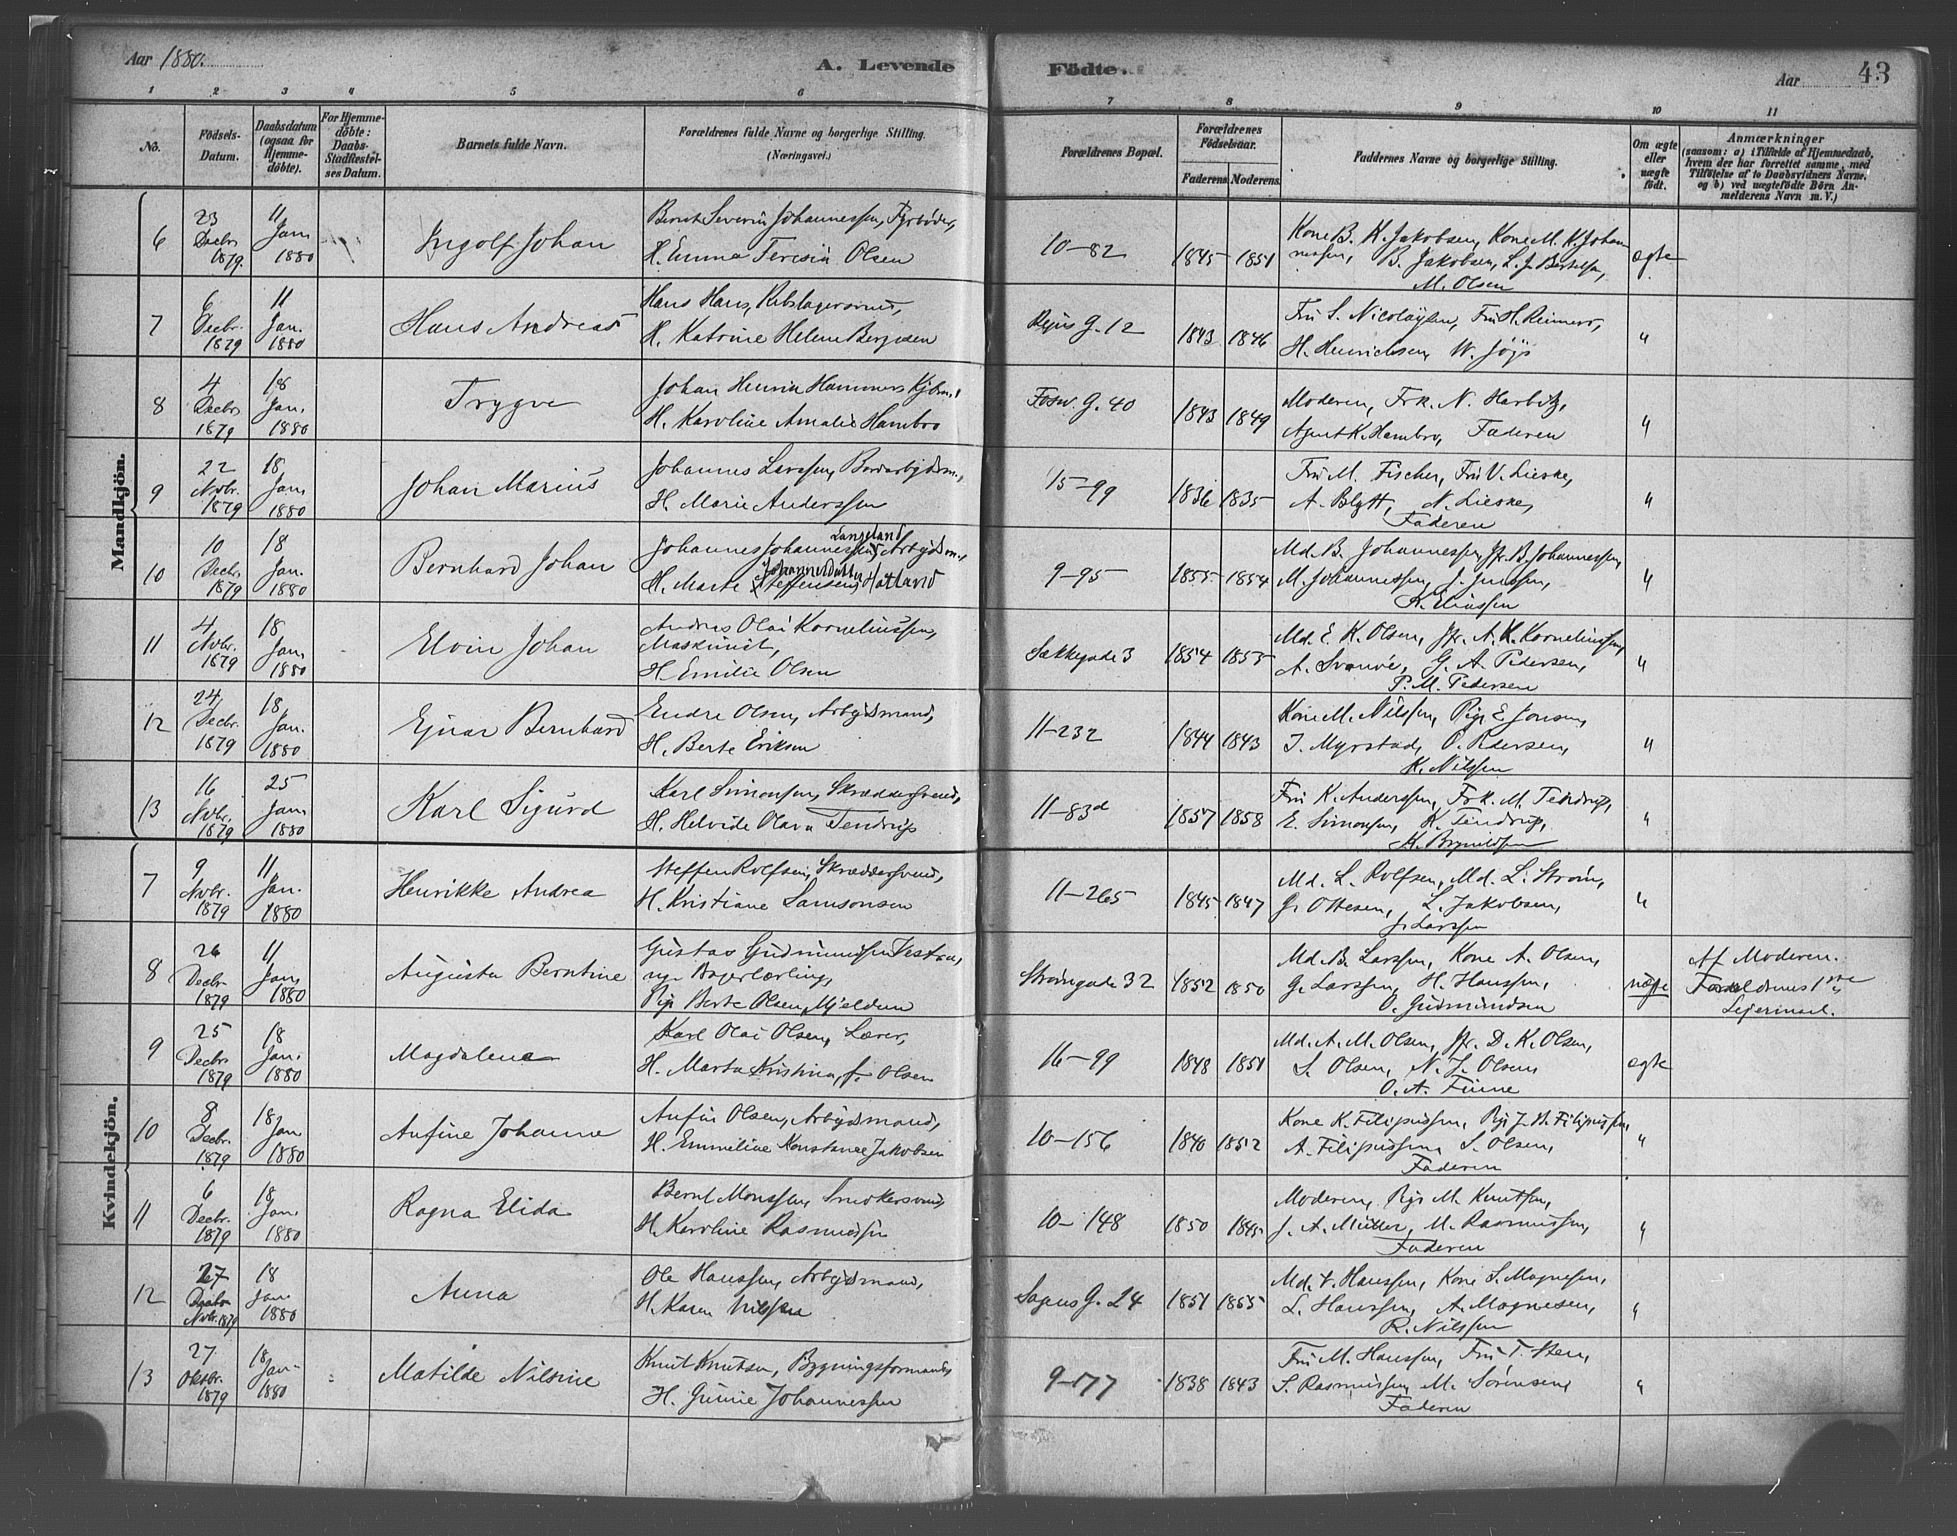 Aar 1880.
A. Levende Födte.
Aar 43
1 2 3 4 5 6 7 8 9 10 11
No.
Födsels-Datum.
Daabsdatum (ogsaa for Hjemmedöbte).
For Hjemmedöbte: Daabs-Stadfæstelses Datum.
Barnets fulde Navn.
Forældrenes fulde Navne og borgerlige Stilling. (Næringsvei.)
Forældrenes Bopæl.
Forældrenes Födselsaar.
Faderens Moderens
Faddernes Navne og borgerlige Stilling.
Om ægte eller uægte födt.
Anmærkninger
(saasom: a) i Tilfælde af Hjemmedaab, hvem der har forrettet samme, med Tilföielse af to Daabsvidners Navne, og b) ved uægtefödte Börn Anmelderens Navn m. V.)
Mandkjön.
6 23 Decbr. 1879. 11 Jan. 1880 Ingolf Johan
Bernt Severin Johannessen, Fyrböder,
H. Emma Teresia Olsen
10-82 1845 1851
Kone B. K. Jakobsen, Kone M. K. Johan
nessen, B. Jakobsen, L. J. Bertelsen,
M. Olsen
ægte
7 6 Decbr. 1879 11 Jan. 1880 Hans Andreas
Hans Hans, Rebslagersvend,
H. Katrine Helene Bergesen
G. 12 1843 1846
Fru S. Nicolaysen, Fru H. Reimers,
H. Henrichsen, W.
"
8 4 Decbr. 1879 18 Jan. 1880 Trygve
Johan Henrik Hammers Kjöbm.,
H. Karoline Amalie Hambro
Fosw. G. 40 1843 1849
Moderen, Frk. N. Harbitz,
Agent K. Hambro, Faderen
"
9 22 Novbr. 1879 18 Jan. 1880 Johan Marius
Johannes Larssen, Bordarbejdsm.,
H. Marie Anderssen
15-99 1836 1835
Fru M. Fischer, Fru V. Lieske,
A. Blytt, N. Lieske,
Faderen
"
10 10 Decbr. 1879 18 Jan. 1880 Bernhard Johan
Langeland
Johannes Johannessen Arbejdsm.,
Johannesdatter
H. Marte Steffensen, Hatland
9-95 1855 1854
Md. B. Johannessen, Jfr. B. Johannessen,
M. Johannessen, J. Jenssen,
K. Eliassen
"
11 4 Novbr. 1879 18 Jan. 1880 Elvin Johan
Andreas Olai Korneliussen,
Maskinist,
H. Emilie Olsen
Sækkegade 3 1854 1855
Md. E. K. Olsen, Jfr. A. K. Korneliussen,
A. Svanöe, G. A. Pedersen,
P. M. Pedersen
"
12 24 Decbr. 1879 18 Jan. 1880 Ejnar Bernhard
Endre Olsen, Arbejdsmand,
H. Berte Eriksen
11-232 1844 1843
Kone M. Nilssen, Pige E. Jonsen,
I. Myrstad, O. Pedersen,
K. Nilssen
"
13 16 Novbr. 1879 25 Jan. 1880 Karl Sigurd
Karl Simonsen, Skræddersvend,
H. Helvide Olava Tendrup
11-83d 1857 1858
Fru K. Anderssen, Frk. M. Tendrup,
E. Simonsen, K. Tendrup,
K. Brynildsen
"
Kvindekjön.
7 9 Novbr. 1879 11 Jan. 1880 Henrikke Andrea
Steffen Rolfsen, Skræddersvend,
H. Kristiane Samsonsen
11-265 1845 1847
Md. L. Rolfsen, Md. L. Ström,
G. Ottesen, L. Jakobsen,
J. Larssen
"
8 26 Decbr. 1879 11 Jan. 1880 Augusta Berntine
Gustav Gudmundsen
Bagerlærling,
Pige Berte Olsen, Mjeldem
Strömgade 32 1852 1850
Md. B. Larssen, Kone A. Olsen,
G. Larssen, H. Hanssen,
O. Gudmundsen
uægte
Af Moderen.
Forældrenes 1ste
Lejermaal.
9 25 Decbr. 1879 18 Jan. 1880 Magdalena
Karl Olai Olsen, Lærer,
H. Marta Kristina, f. Olsen
16-99 1848 1851
Md. A. M. Olsen, Jfr. D. K. Olsen,
S. Olsen, N. J. Olsen,
O. A. Finne
ægte
10 8 Decbr. 1879 18 Jan 1880 Anfine Johanne
Anfin Olsen, Arbejdsmand,
H. Emmeline Konstance Jakobsen
10-156 1840 1852
Kone K. Filipussen, Pige J. B. Filipussen,
A. Filipussen, S. Olsen,
Faderen
"
11 6 Decbr. 1879 18 Jan. 1880 Ragna Elida
Bernt Monssen, Snedkersvend,
H. Karoline Rasmussen
10-148 1850 1845
Moderen, Pige M. Knutsen,
J. A. Müller, M. Rasmussen,
Faderen
"
12 27 Decbr. Novbr. 1879 18 Jan. 1880 Anna
Ole Hanssen, Arbejdsmand,
H. Karen Nilssen
G. 24 1851 1855
Md. V. Hanssen, Kone S. Magnesen,
L. Hanssen, A. Magnesen,
R. Nilssen
"
13 27 Oktbr. 1879 18 Jan. 1880 Matilde Nilsine
Knut Knutsen, Bygningsformand,
H. Gunie Johannessen
9-177 1838 1843
Fru M. Hanssen, Fru T. Steen,
S. Rasmussen, M. Sörensen,
Faderen
"